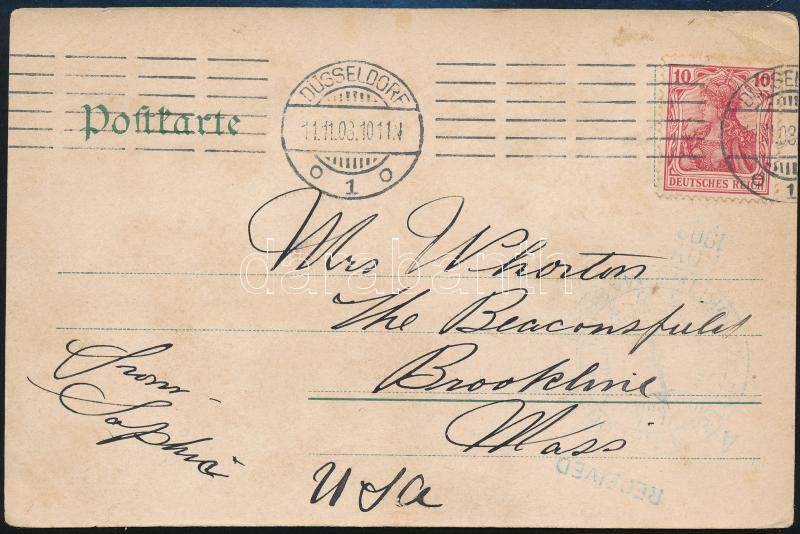 DÜSSELDORF
11.11.03.10 11 N
o 1 o
10 10
DEUTSCHES REICH
Postkarte
Mrs Whorton
The Beaconsfield
Brookline
Mass
USA
From
Sophie
RECEIVED
darabanth